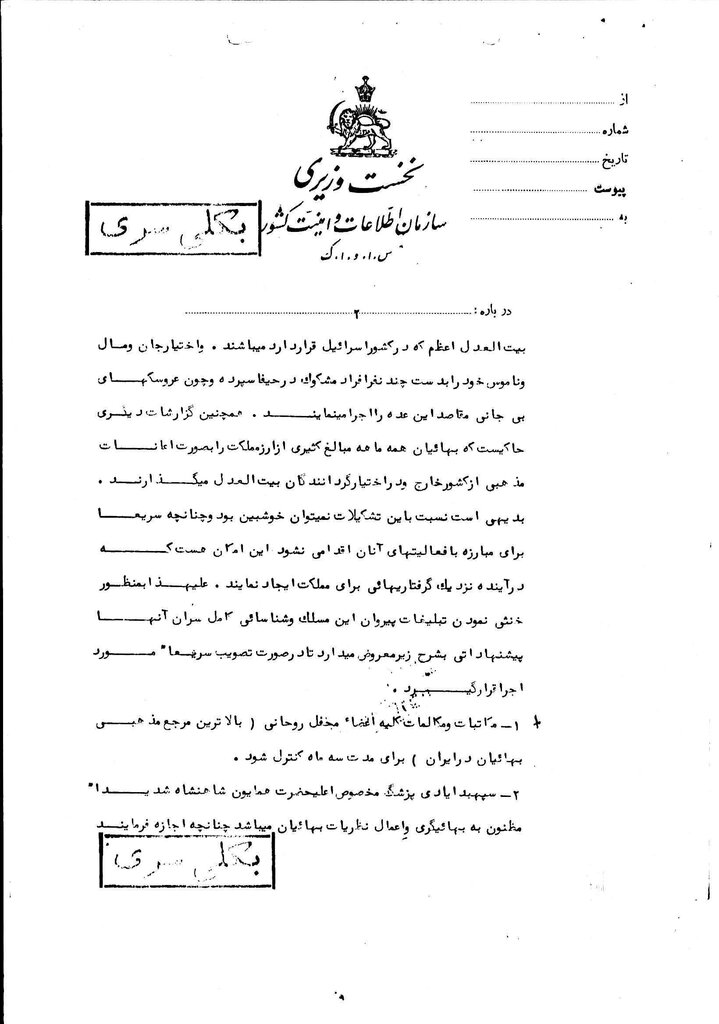 از
شماره
تاریخ
پیوست
به
نخست وزیری
سازمان اطلاعات و امنیت کشور
س.ا.و.ا.ک
بکلی سری
درباره: ۲
بیت العدل اعظم که در کشور اسرائیل قرار دارد میباشند . واختیار جان ومال
وناموس خود را بدست چند نفر افراد مشکوک در حیفا سپرده وچون عروسکهای
بی جانی مقاصد این عده را اجرا مینمایند . همچنین گزارشات دیگری
حاکیست که بهائیان همه ماهه مبالغ کثیری از ارز مملکت را بصورت اعانات
مذهبی از کشور خارج ودر اختیار گردانندگان بیت العدل میگذارند .
بدیهی است نسبت باین تشکیلات نمیتوان خوشبین بود وچنانچه سریعا
برای مبارزه با فعالیتهای آنان اقدامی نشود این امکان هست که
در آینده نزدیک گرفتاریهائی برای مملکت ایجاد نمایند . علیهذا بمنظور
خنثی نمودن تبلیغات پیروان این مسلک وشناسائی کامل سران آنها
پیشنهاداتی بشرح زیر معروض میدارد تا در صورت تصویب سریعا" مورد
اجرا قرار گیرد .
۱ـ مکاتبات ومکالمات کلیه اعضاء محفل روحانی ( بالاترین مرجع مذهبی
بهائیان در ایران ) برای مدت سه ماه کنترل شود .
۲ـ سپهبد ایادی پزشک مخصوص اعلیحضرت همایون شاهنشاه شدیدا"
مظنون به بهائیگری واعمال نظریات بهائیان میباشد چنانچه اجازه فرمایند
بکلی سری